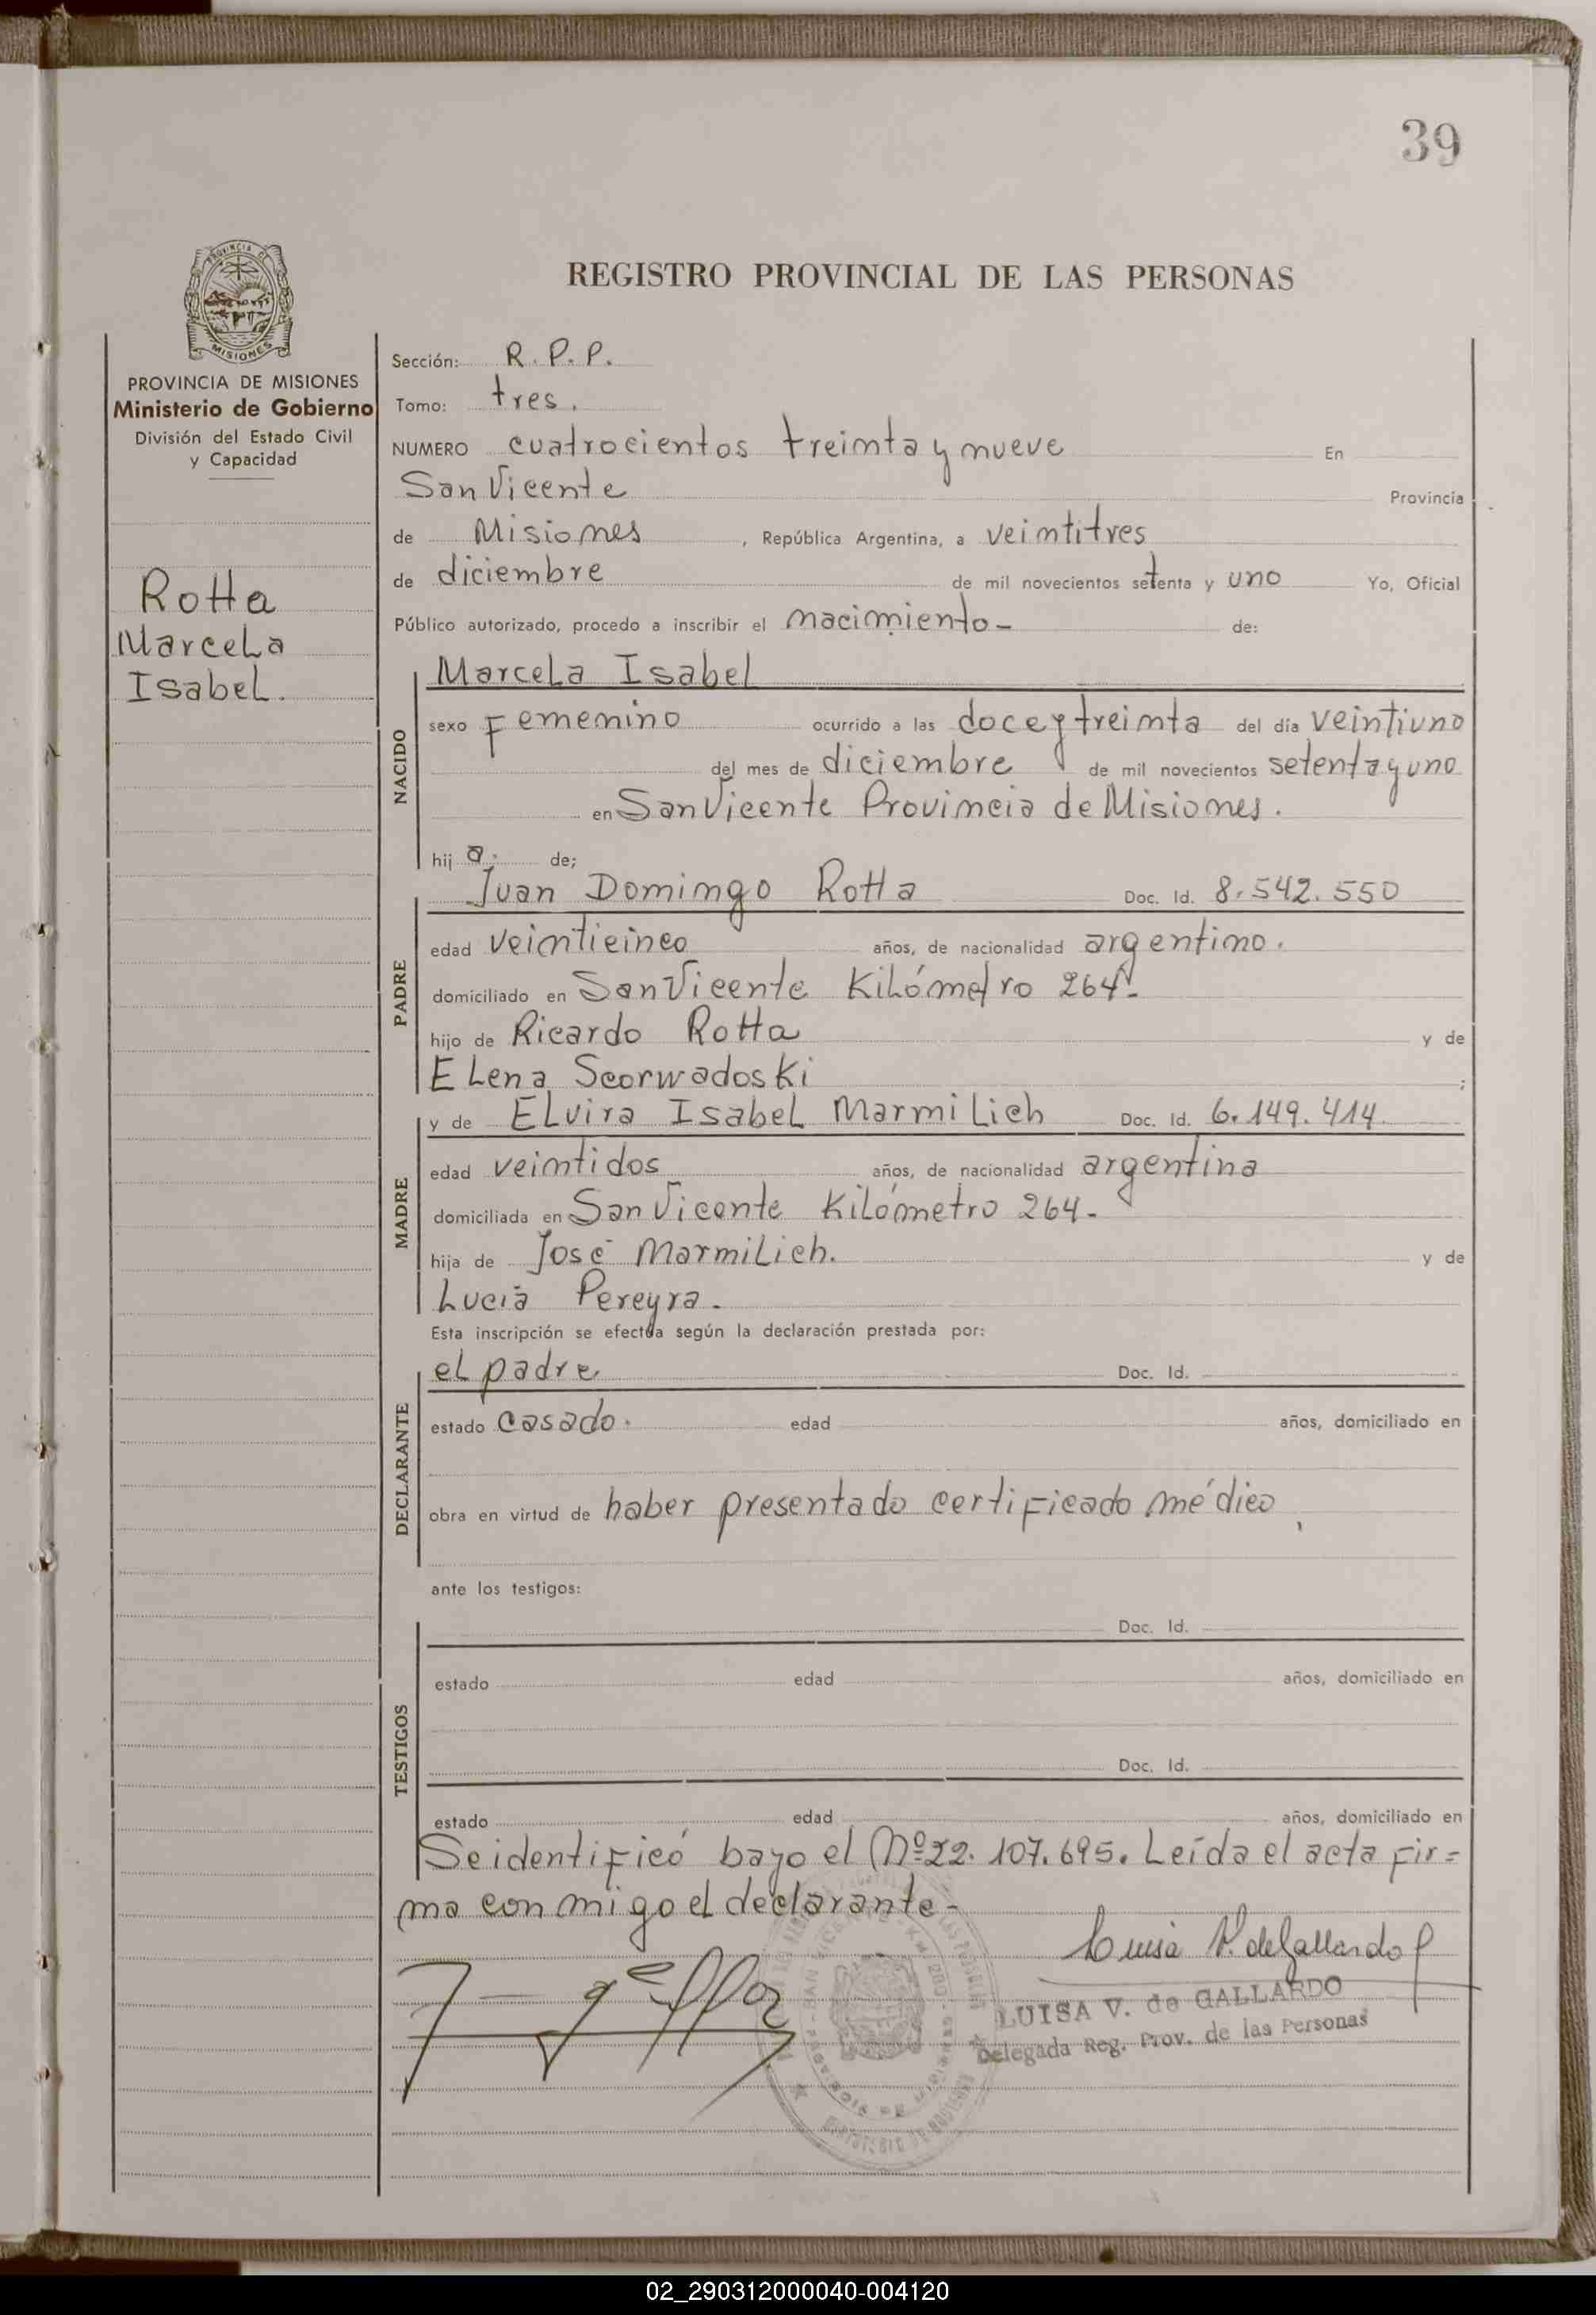 39
REGISTRO PROVINCIAL DE LAS PERSONAS
PROVINCIA DE
MISIONES
PROVINCIA DE MISIONES
Ministerio de Gobierno
División del Estado Civil
y Capacidad
Rotta
Marcela
Isabel.
Sección: R. P. P.
Tomo: tres.
NUMERO cuatrocientos treinta y nueve En
San Vicente Provincia
de Misiones, República Argentina, a veintitres
de diciembre de mil novecientos setenta y uno Yo, Oficial
Público autorizado, procedo a inscribir el nacimiento - de:
NACIDO
Marcela Isabel
sexo Femenino ocurrido a las doce y treinta del día veintiuno
del mes de diciembre de mil novecientos setenta y uno
en San Vicente Provincia de Misiones.
hij a. de;
PADRE
Juan Domingo Rotta Doc. Id. 8.542.550
edad veinticinco años, de nacionalidad argentino.
domiciliado en San Vicente Kilómetro 264-
hijo de Ricardo Rotta y de
Elena Scorwadoski ;
MADRE
y de Elvira Isabel Marmilich Doc. Id. 6.149.414
edad veintidos años, de nacionalidad argentina
domiciliada en San Vicente Kilómetro 264-
hija de José Marmilich. y de
Lucía Pereyra.
Esta inscripción se efectúa según la declaración prestada por:
DECLARANTE
el padre Doc. Id.
estado casado. edad años, domiciliado en
obra en virtud de haber presentado certificado médico
ante los testigos:
TESTIGOS
Doc. Id.
estado edad años, domiciliado en
Doc. Id.
estado edad años, domiciliado en
Se identificó bajo el Nº 22.107.695. Leída el acta fir=
ma conmigo el declarante-
Luisa V. de Gallardo
LUISA V. de GALLARDO
Delegada Reg. Prov. de las Personas
02_290312000040-004120